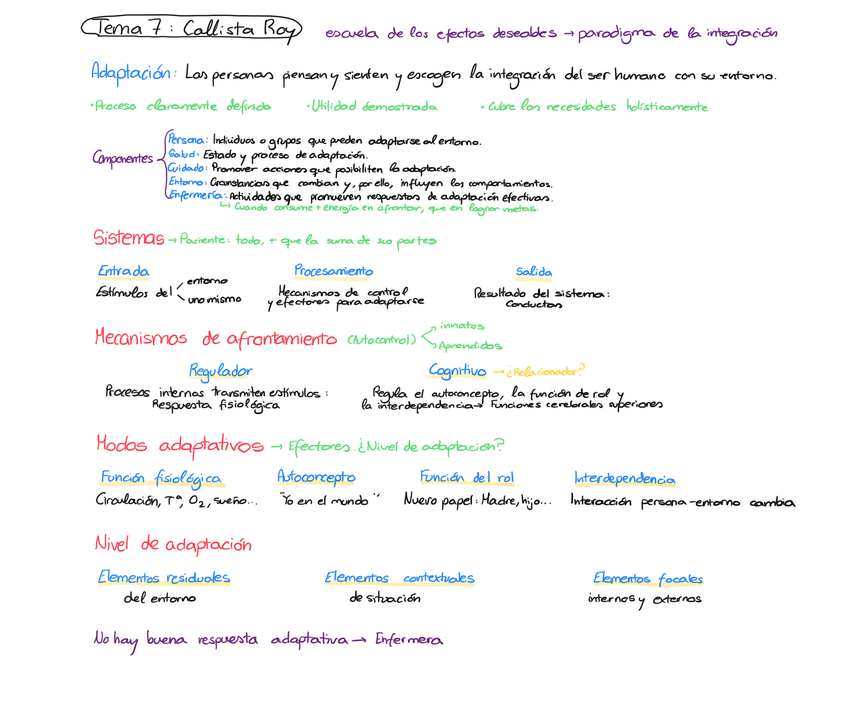 Tema 7: Callista Roy
escuela de los efectos deseables → paradigma de la integración
Adaptación: Las personas piensan y sienten y escogen la integración del ser humano con su entorno.
· Proceso claramente definido · Utilidad demostrada · Cubre las necesidades holísticamente
Componentes
Persona: Individuos o grupos que pueden adaptarse al entorno.
Salud: Estado y proceso de adaptación.
Cuidado: Promover acciones que posibiliten la adaptación.
Entorno: Circunstancias que cambian y, por ello, influyen los comportamientos.
Enfermería: Actividades que promueven respuestas de adaptación efectivas.
↳ Cuando consume + energía en afrontar, que en lograr metas.
Sistemas → Paciente: todo, + que la suma de sus partes
Entrada Procesamiento Salida
Estímulos del entorno
uno mismo
Mecanismos de control
y efectores para adaptarse
Resultado del sistema:
Conductas
Mecanismos de afrontamiento (Autocontrol) innatos
Aprendidos
Regulador Cognitivo → ¿Relacionador?
Procesos internos transmiten estímulos:
Respuesta fisiológica
Regula el autoconcepto, la función de rol y
la interdependencia → Funciones cerebrales superiores
Modos adaptativos → Efectores. ¿Nivel de adaptación?
Función fisiológica Autoconcepto Función del rol Interdependencia
Circulación, Tª, O2, sueño... "Yo en el mundo" Nuevo papel: Madre, hijo... Interacción persona-entorno cambia
Nivel de adaptación
Elementos residuales Elementos contextuales Elementos focales
del entorno de situación internos y externos
No hay buena respuesta adaptativa → Enfermera